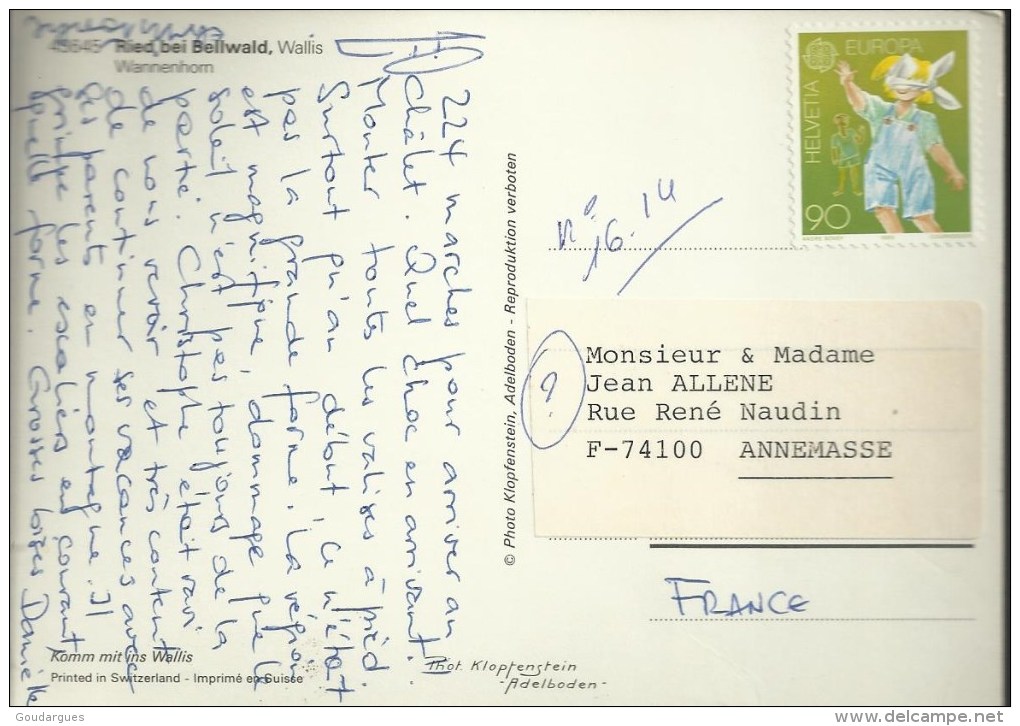 45645 Ried bei Bellwald, Wallis
Wannenhorn
224 marches pour arriver au
châlet. Quel choc en arrivant.
Monter touts les valises à pied.
Surtout qu'au début ce n'était
pas la grande forme. La région
est magnifique, dommage que le
soleil n'est pas toujours de la
partie. Christophe était ravi
de nous revoir et très content
de continuer ses vacances avec
ses parents en montagne. Il
grimpe les escaliers en courant
quelle forme. Grosses bises Danielle
Komm mit ins Wallis
Printed in Switzerland - Imprimé en Suisse
© Photo Klopfenstein, Adelboden - Reproduktion verboten
Phot. Klopfenstein
-Adelboden-
EUROPA
HELVETIA
90
n° 16.14
?
Monsieur & Madame
Jean ALLENE
Rue René Naudin
F-74100 ANNEMASSE
FRANCE
Goudargues
www.delcampe.net